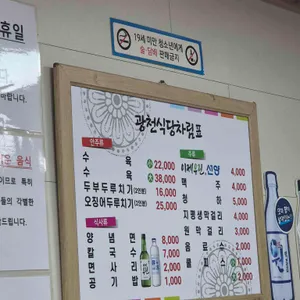 휴일
19세 미만 청소년에게
술·담배 판매금지
광천식당차림표
안주류
수육 소 22,000
수육 대 38,000
두부두루치기(2인분) 16,000
오징어두루치기(2인분) 25,000
식사류
양념면 8,000
칼국수 7,000
면사리 2,000
공기밥 1,000
주류
이제우린, 선양 4,000
맥주 4,000
청하 5,000
지평생막걸리 4,000
원막걸리 3,000
음료수 2,000